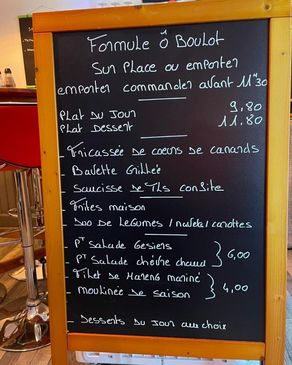 Formule Ô Boulot
Sur Place ou emporter
emporter commander avant 11H30
Plat du Jour 9,80
Plat Dessert 11,80
_ Fricassée de coeurs de canards
_ Bavette Grillée
_ Saucisse de Tls confite
_ Frites maison
_ Duo de Legumes / navets / carottes
_ Pt Salade Gesiers
_ Pt Salade chèvre chaud } 6,00
_ Filet de Hareng mariné
_ moulinée de saison } 4,00
_ Desserts du Jour au choix